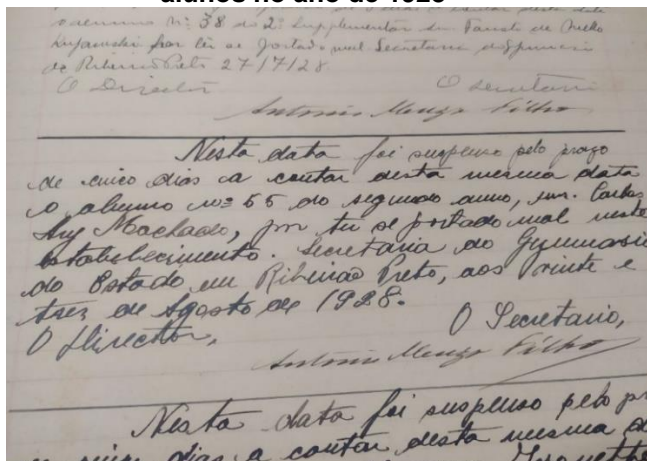 alunos no ano de 1928
nº 38 do 2º Supplementar snr. Fausto de Mello
por ter se portado mal Secretaria do Gymnasio
de Ribeirão Preto 27/7/28.
O Director O secretario
Antonio Filho
Nesta data foi suspenso pelo prazo
de cinco dias a contar desta mesma data
o alumno nº 55 do segundo anno, snr. Carlos
Machado, por ter se portado mal neste
estabelecimento. Secretaria do Gymnasio
do Estado em Ribeirão Preto, aos vinte e
trez de Agosto de 1928.
O Director, O Secretario,
Antonio Filho
Nesta data foi suspenso pelo
dias a contar desta mesma